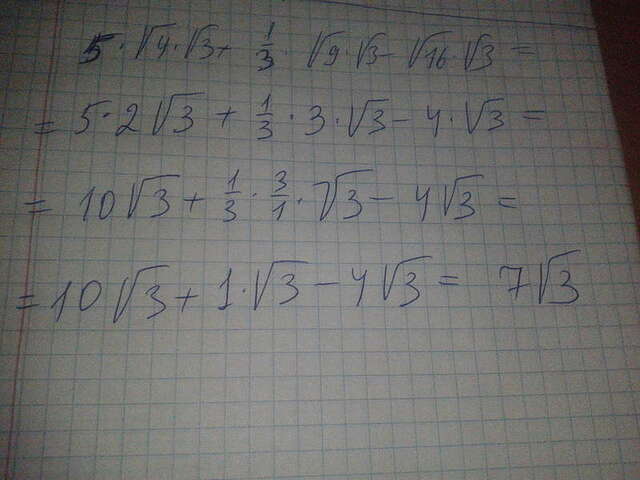 5·√4·√3+ 1/3·√9·√3-√16·√3=
=5·2√3+1/3·3·√3-4·√3=
=10√3+1/3·3/1·√3-4√3=
=10√3+1·√3-4√3= 7√3